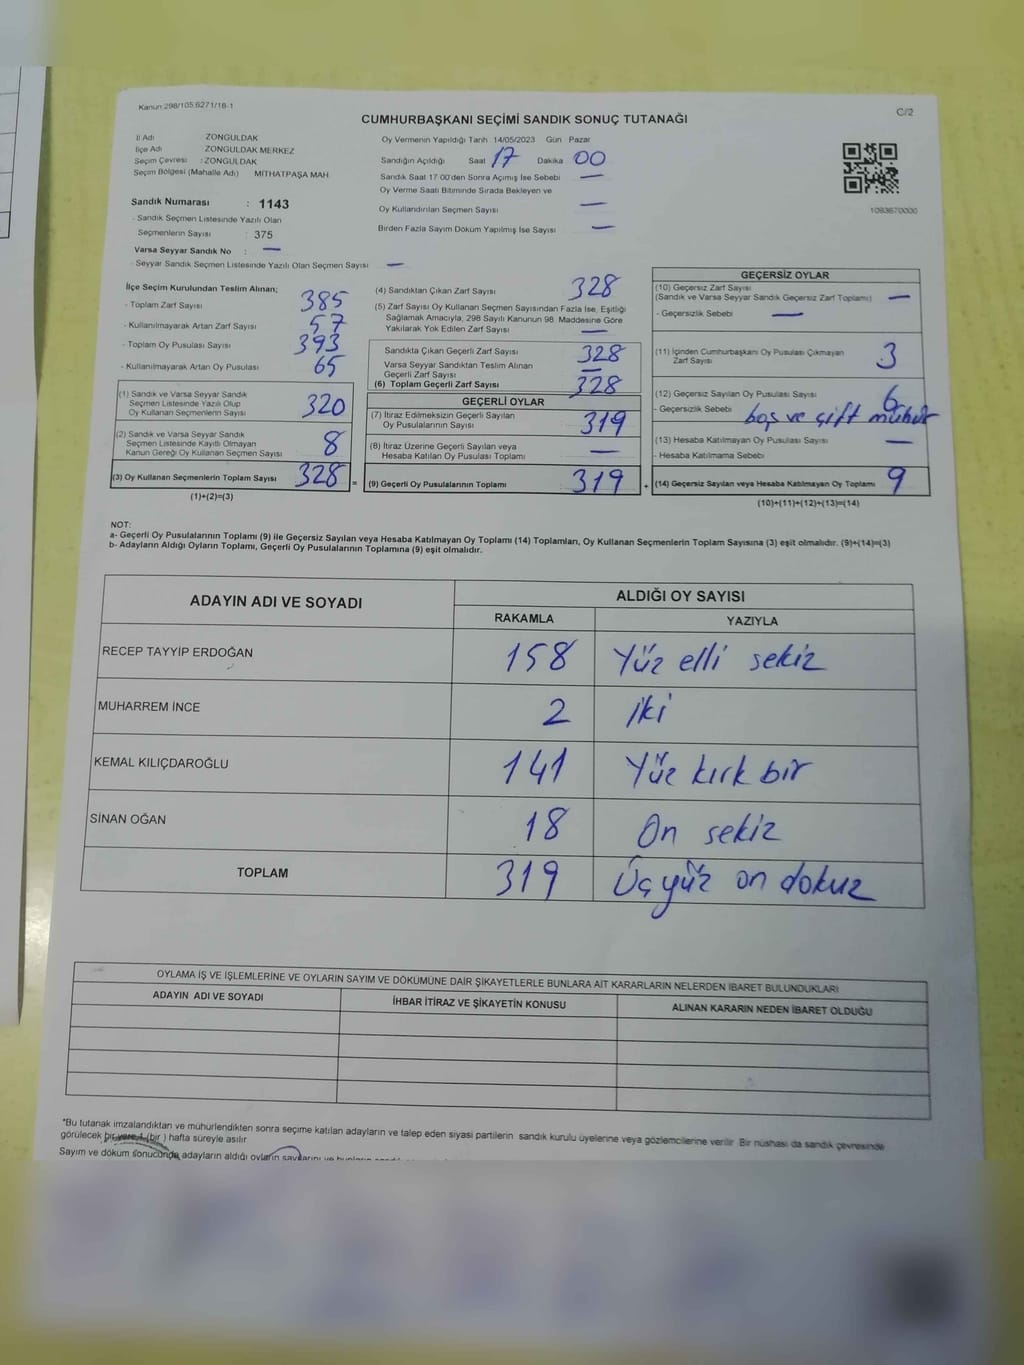 Kanun 298/105.6271/18-1
C/2
CUMHURBAŞKANI SEÇİMİ SANDIK SONUÇ TUTANAĞI
İl Adı ZONGULDAK
İlçe Adı ZONGULDAK MERKEZ
Seçim Çevresi : ZONGULDAK
Seçim Bölgesi (Mahalle Adı) MİTHATPAŞA MAH.
Sandık Numarası : 1143
- Sandık Seçmen Listesinde Yazılı Olan
Seçmenlerin Sayısı : 375
Varsa Seyyar Sandık No : —
- Seyyar Sandık Seçmen Listesinde Yazılı Olan Seçmen Sayısı —
Oy Vermenin Yapıldığı Tarih 14/05/2023 Gün Pazar
Sandığın Açıldığı Saat 17 Dakika 00
Sandık Saat 17.00'den Sonra Açımış İse Sebebi —
Oy Verme Saati Bitiminde Sırada Bekleyen ve
Oy Kullandırılan Seçmen Sayısı —
Birden Fazla Sayım Döküm Yapılmış İse Sayısı —
1093670000
İlçe Seçim Kurulundan Teslim Alınan;
- Toplam Zarf Sayısı 385
- Kullanılmayarak Artan Zarf Sayısı 57
- Toplam Oy Pusulası Sayısı 393
- Kullanılmayarak Artan Oy Pusulası 65
(1) Sandık ve Varsa Seyyar Sandık
Seçmen Listesinde Yazılı Olup
Oy Kullanan Seçmenlerin Sayısı 320
(2) Sandık ve Varsa Seyyar Sandık
Seçmen Listesinde Kayıtlı Olmayan
Kanun Gereği Oy Kullanan Seçmen Sayısı 8
(3) Oy Kullanan Seçmenlerin Toplam Sayısı 328 =
(1)+(2)=(3)
(4) Sandıktan Çıkan Zarf Sayısı 328
(5) Zarf Sayısı Oy Kullanan Seçmen Sayısından Fazla İse, Eşitliği
Sağlamak Amacıyla, 298 Sayılı Kanunun 98. Maddesine Göre
Yakılarak Yok Edilen Zarf Sayısı —
Sandıkta Çıkan Geçerli Zarf Sayısı 328
Varsa Seyyar Sandıktan Teslim Alınan
Geçerli Zarf Sayısı —
(6) Toplam Geçerli Zarf Sayısı 328
GEÇERLİ OYLAR
(7) İtiraz Edilmeksizin Geçerli Sayılan
Oy Pusulalarının Sayısı 319
(8) İtiraz Üzerine Geçerli Sayılan veya
Hesaba Katılan Oy Pusulası Toplamı —
(9) Geçerli Oy Pusulalarının Toplamı 319 +
GEÇERSİZ OYLAR
(10) Geçersiz Zarf Sayısı
(Sandık ve Varsa Seyyar Sandık Geçersiz Zarf Toplamı) —
- Geçersizlik Sebebi —
(11) İçinden Cumhurbaşkanı Oy Pusulası Çıkmayan
Zarf Sayısı 3
(12) Geçersiz Sayılan Oy Pusulası Sayısı 6
- Geçersizlik Sebebi boş ve çift mühür
(13) Hesaba Katılmayan Oy Pusulası Sayısı —
- Hesaba Katılmama Sebebi
(14) Geçersiz Sayılan veya Hesaba Katılmayan Oy Toplamı 9
(10)+(11)+(12)+(13)=(14)
NOT:
a- Geçerli Oy Pusulalarının Toplamı (9) ile Geçersiz Sayılan veya Hesaba Katılmayan Oy Toplamı (14) Toplamları, Oy Kullanan Seçmenlerin Toplam Sayısına (3) eşit olmalıdır. (9)+(14)=(3)
b- Adayların Aldığı Oyların Toplamı, Geçerli Oy Pusulalarının Toplamına (9) eşit olmalıdır.
ADAYIN ADI VE SOYADI ALDIĞI OY SAYISI
RAKAMLA YAZIYLA
RECEP TAYYİP ERDOĞAN 158 Yüz elli sekiz
MUHARREM İNCE 2 iki
KEMAL KILIÇDAROĞLU 141 Yüz kırk bir
SİNAN OĞAN 18 On sekiz
TOPLAM 319 Üçyüz on dokuz
OYLAMA İŞ VE İŞLEMLERİNE VE OYLARIN SAYIM VE DÖKÜMÜNE DAİR ŞİKAYETLERLE BUNLARA AİT KARARLARIN NELERDEN İBARET BULUNDUKLARI
ADAYIN ADI VE SOYADI İHBAR İTİRAZ VE ŞİKAYETİN KONUSU ALINAN KARARIN NEDEN İBARET OLDUĞU
*Bu tutanak imzalandıktan ve mühürlendikten sonra seçime katılan adayların ve talep eden siyasi partilerin sandık kurulu üyelerine veya gözlemcilerine verilir. Bir nüshası da sandık çevresinde
görülecek bir yere 1 (bir) hafta süreyle asılır.
Sayım ve döküm sonucunda adayların aldığı oyların sayılarını ve